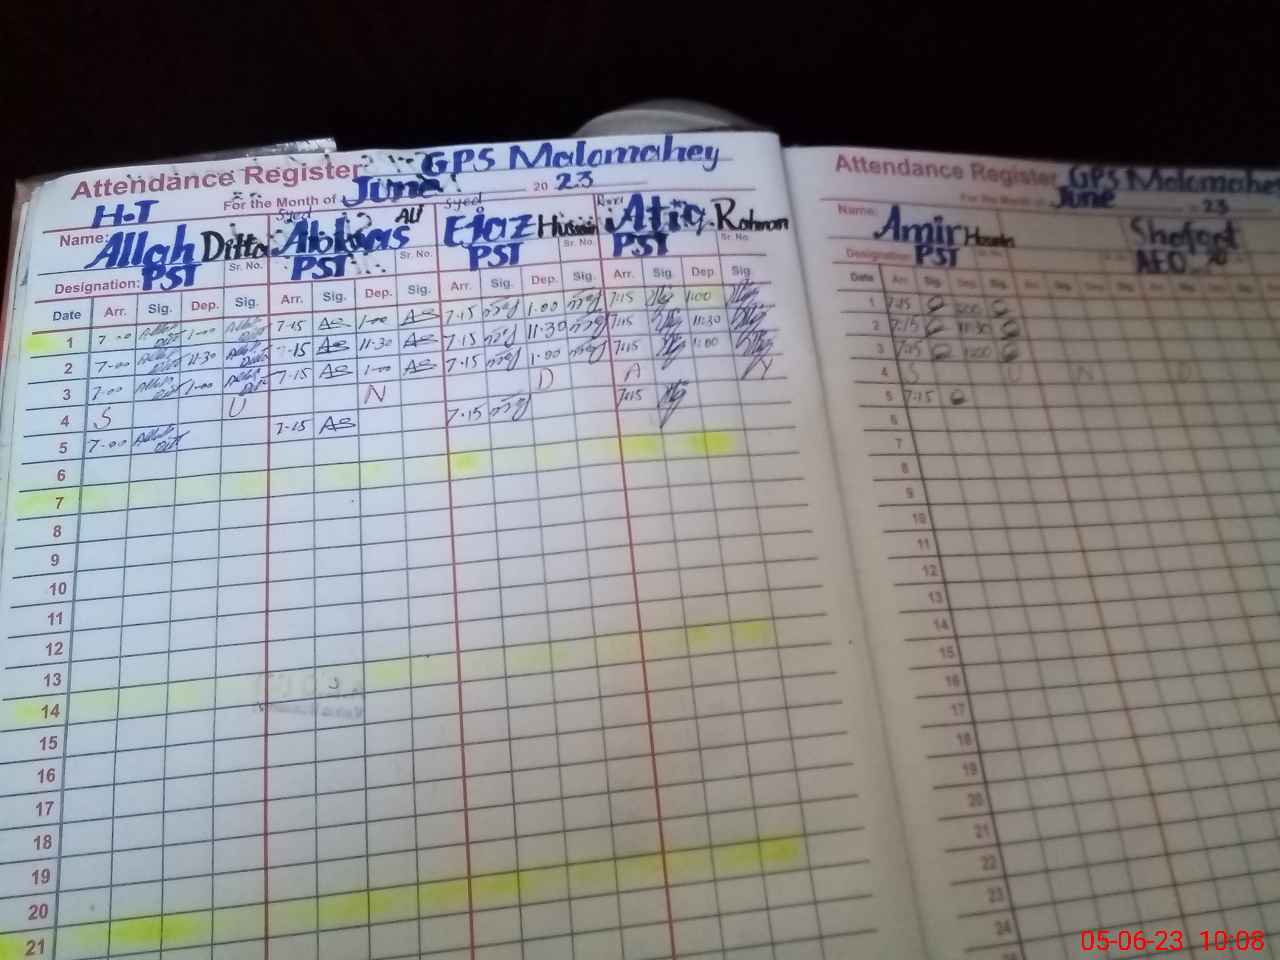 Attendance Register GPS Malomahey
For the Month of June 2023
H.T
Name: Allah Ditta Syed Abbas Ali Syed Ejaz Hussain Atiq Rahman
Sr. No. Sr. No. Sr. No.
Designation: PST PST PST PST
Date Arr. Sig. Dep. Sig. Arr. Sig. Dep. Sig. Arr. Sig. Dep. Sig. Arr. Sig. Dep. Sig.
1 7-00 1-00 7-15 AS 1-00 AS 7.15 1.00 7:15 1:00
2 7-00 11-30 7-15 AS 11-30 AS 7.15 11-30 7:15 11:30
3 7-00 1-00 7-15 AS 1-00 AS 7.15 1.00 7:15 1:00
4 S U N D A Y
5 7-00 7-15 AS 7.15 7:15
6
7
8
9
10
11
12
13
14
15
16
17
18
19
20
21
Attendance Register GPS Malomahey
For the Month of June 23
Name: Amir Hussain
Designation: PST AEO
Date Arr. Sig. Dep. Sig.
1 7:15 1:00
2 7:15 11:30
3 7:15 1:00
4 S U N D
5 7:15
6
7
8
9
10
11
12
13
14
15
16
17
18
19
20
21
22
23
24
05-06-23 10:08